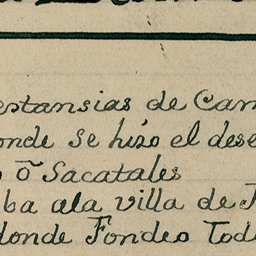 estansias de Cam
onde se hizo el dese
o õ Sacatales
ba ala villa de
donde Fondeo Tod